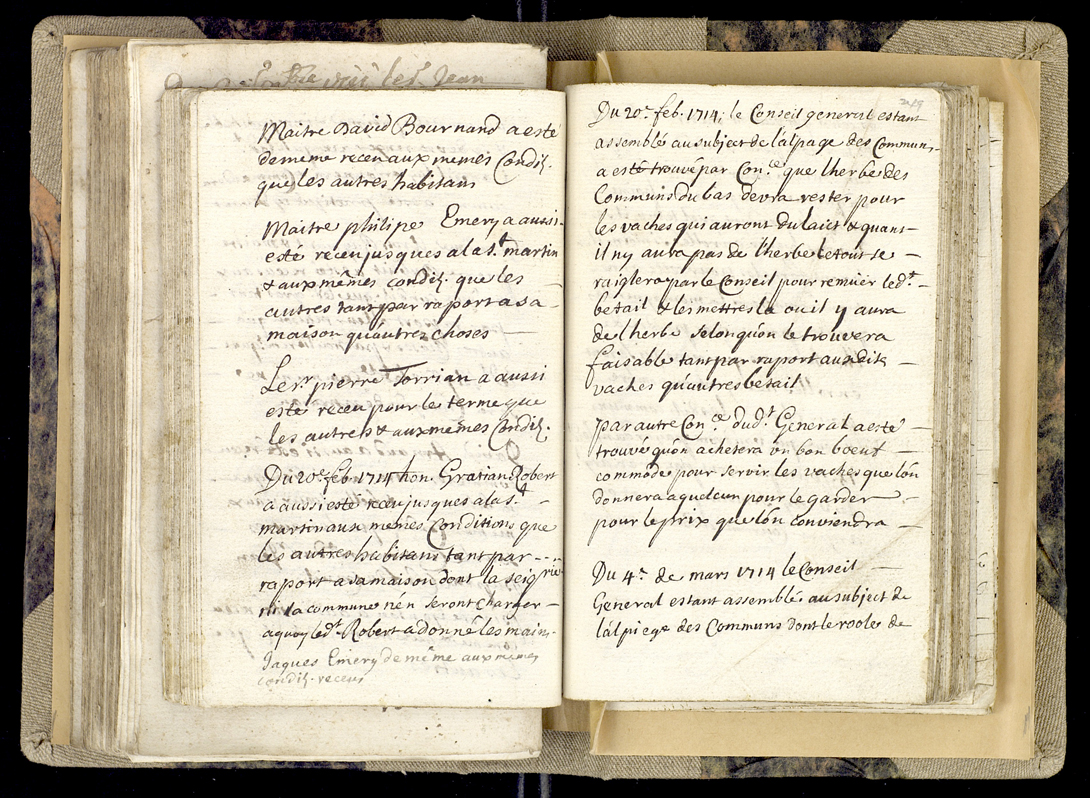 Jean
Maitre David Bournand a esté
de meme receu aux memes Condi͠t.
que les autres habitans
Maitre philipe Emery a aussi-
esté receu jusques a la s.t martin
& aux mêmes condi͠t. que les —
autres tant par raport a sa —
maison qu'autres choses
Le s.r pierre Torrian a aussi
esté receu pour le terme que
les autres & aux mêmes Condi͠t.
Du 20.e feb. 1714 hon. Gratian Robert
a aussi esté receu jusques a la s.t —
martin aux memes Conditions que
les autres habitans tant par --
raport a sa maison dont la seig.rie
ni la commune n'en seront charger —
a quoy led.t Robert a donné les mains.
Jaques Emery de même aux memes
condi͠t. receus
249
Du 20.e feb. 1714, le Conseil general estant
assemblé au subject de l'alpage des Communs,-
a esté trouvé par Con.ce que lherbe des
Communs du bas devra rester pour
les vaches qui auront du laict & quant —
il ny aura pas de l'herbe le tout se —
raiglera par le Conseil pour remüer led.t —
betail & les mettres la ou il y aura
de l'herbe selon qu'on le trouvera
faisable tant par raport aux dits —
vaches qu'autres betail
par autre Con.ce dud.t General a esté —
trouvé qu'on achetera un bon boeuf —
commôde pour servir les vaches que l'on
donnera a quelcun pour le garder —
pour le prix que l'on conviendra —
Du 4.e de mars 1714 le Conseil —
General estant assemblé au subject de
l'alpiege des Communs dont le roole de